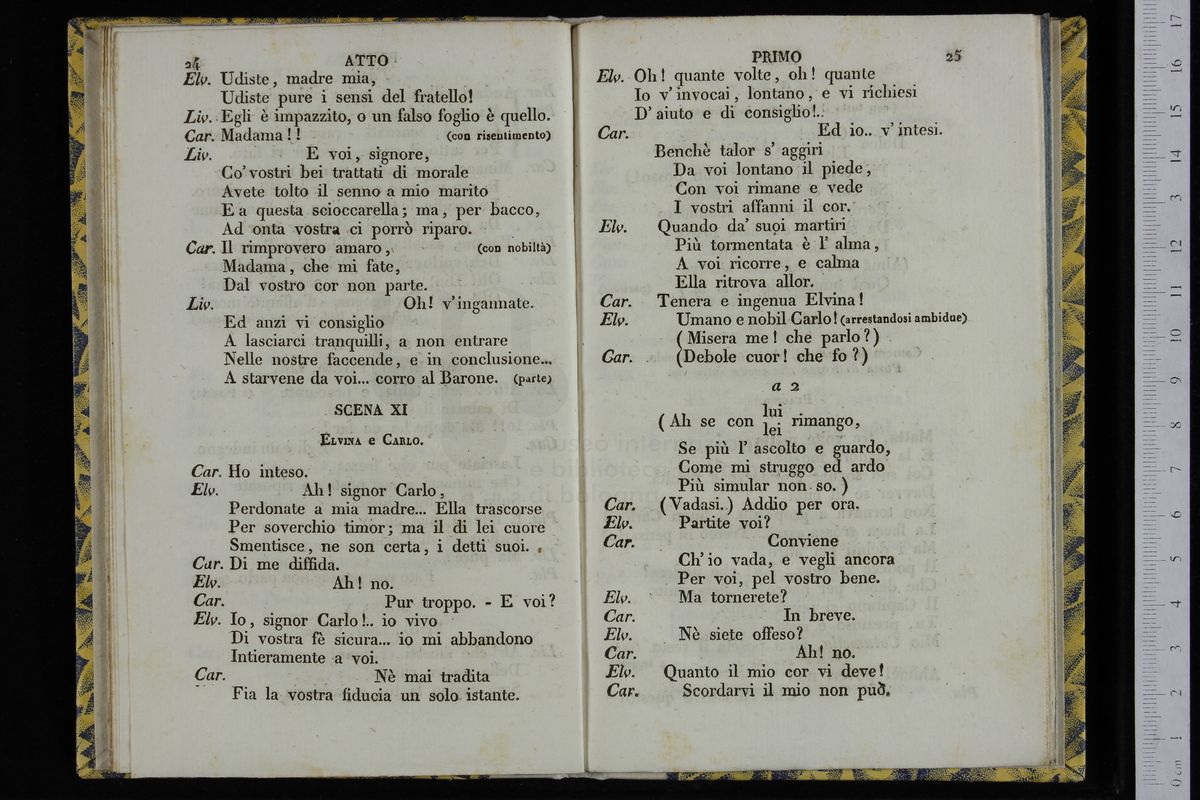 24 ATTO
Elv. Udiste, madre mia,
Udiste pure i sensi del fratello!
Liv. Egli è impazzito, o un falso foglio è quello.
Car. Madama!! (con risentimento)
Liv. E voi, signore,
Co' vostri bei trattati di morale
Avete tolto il senno a mio marito
E a questa scioccarella; ma, per bacco,
Ad onta vostra ci porrò riparo.
Car. Il rimprovero amaro, (con nobiltà)
Madama, che mi fate,
Dal vostro cor non parte.
Liv. Oh! v'ingannate.
Ed anzi vi consiglio
A lasciarci tranquilli, a non entrare
Nelle nostre faccende, e in conclusione...
A starvene da voi... corro al Barone. (parte)
SCENA XI
Elvina e Carlo.
Car. Ho inteso.
Elv. Ah! signor Carlo,
Perdonate a mia madre... Ella trascorse
Per soverchio timor; ma il di lei cuore
Smentisce, ne son certa, i detti suoi.
Car. Di me diffida.
Elv. Ah! no.
Car. Pur troppo. - E voi?
Elv. Io, signor Carlo!.. io vivo
Di vostra fè sicura... io mi abbandono
Intieramente a voi.
Car. Nè mai tradita
Fia la vostra fiducia un solo istante.
PRIMO 25
Elv. Oh! quante volte, oh! quante
Io v' invocai, lontano, e vi richiesi
D' aiuto e di consiglio!..
Car. Ed io.. v' intesi.
Benchè talor s' aggiri
Da voi lontano il piede,
Con voi rimane e vede
I vostri affanni il cor.
Elv. Quando da' suoi martiri
Più tormentata è l' alma,
A voi ricorre, e calma
Ella ritrova allor.
Car. Tenera e ingenua Elvina!
Elv. Umano e nobil Carlo! (arrestandosi ambidue)
(Misera me! che parlo?)
Car. (Debole cuor! che fo?)
a 2
(Ah se con lui rimango,
lei
Se più l' ascolto e guardo,
Come mi struggo ed ardo
Più simular non so.)
Car. (Vadasi..) Addio per ora.
Elv. Partite voi?
Car. Conviene
Ch' io vada, e vegli ancora
Per voi, pel vostro bene.
Elv. Ma tornerete?
Car. In breve.
Elv. Nè siete offeso?
Car. Ah! no.
Elv. Quanto il mio cor vi deve!
Car. Scordarvi il mio non può.